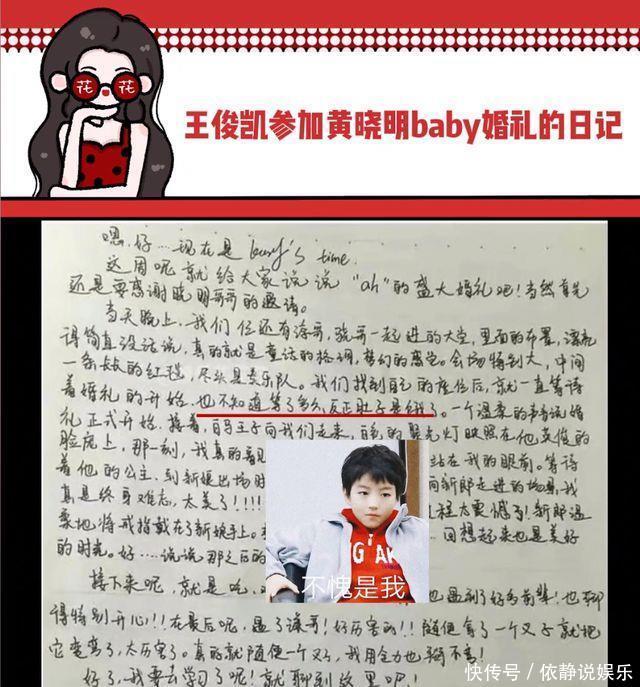 花 花
王俊凯参加黄晓明baby婚礼的日记
嗯,好……现在是 karry's time.
这周呢就给大家说说"ah"的盛大婚礼吧!当然首先
还是要感谢晓明哥哥的邀请。
当天晚上,我们仨还有涛哥,骁哥一起进的大堂,里面的布置,漂亮
得简直没话说,真的就是童话的格调,梦幻的感觉。会场特别大,中间
一条长长的红毯,尽头是乐队。我们找到自己的座位后,就一直等待
着婚礼的开始,也不知道等了多久,反正肚子是饿了。一个温柔的声音说婚
礼正式开始,接着,白马王子向我们走来,白色的聚光灯映照在他英俊的
脸庞上,那一刻,我真的着 站在我的眼前。等待
着他的公主,到新娘出场时 向新郎走进的场景,我
真是终身难忘,太美了!!!! 程太震撼了!新郎温
柔地将戒指戴在了新娘手上。 回想起来也是美好
的时光。好……说说那之后的
接下来呢,就是吃, 也遇到了好多前辈!也聊
得特别开心!!在最后呢,遇了谦哥!好厉害的!!随便拿了一个叉子就把
它变弯了,太厉害了。真的就随便一个叉子,我用全力也掰不弯!
好了,我要去学习了呢!就聊到这里吧!
GAK
不愧是我
快传号/依静说娱乐